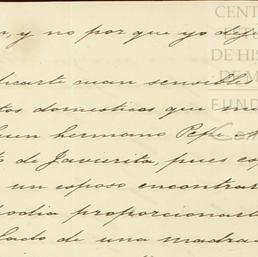 , y no por que yo deje
dicarte cuan sensible
tos domesticos que
buen hermano Pepe
de Javierita, pues es
un esposo encontrar
podia proporcionart
lado de una madra
CENT
DE HIS
DE M
FUND